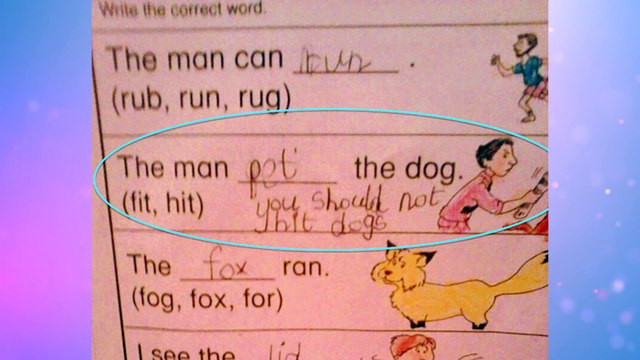 Write the correct word.
The man can run.
(rub, run, rug)
The man pot the dog.
(fit, hit) you should not
hit dogs
The fox ran.
(fog, fox, for)
I see the lid